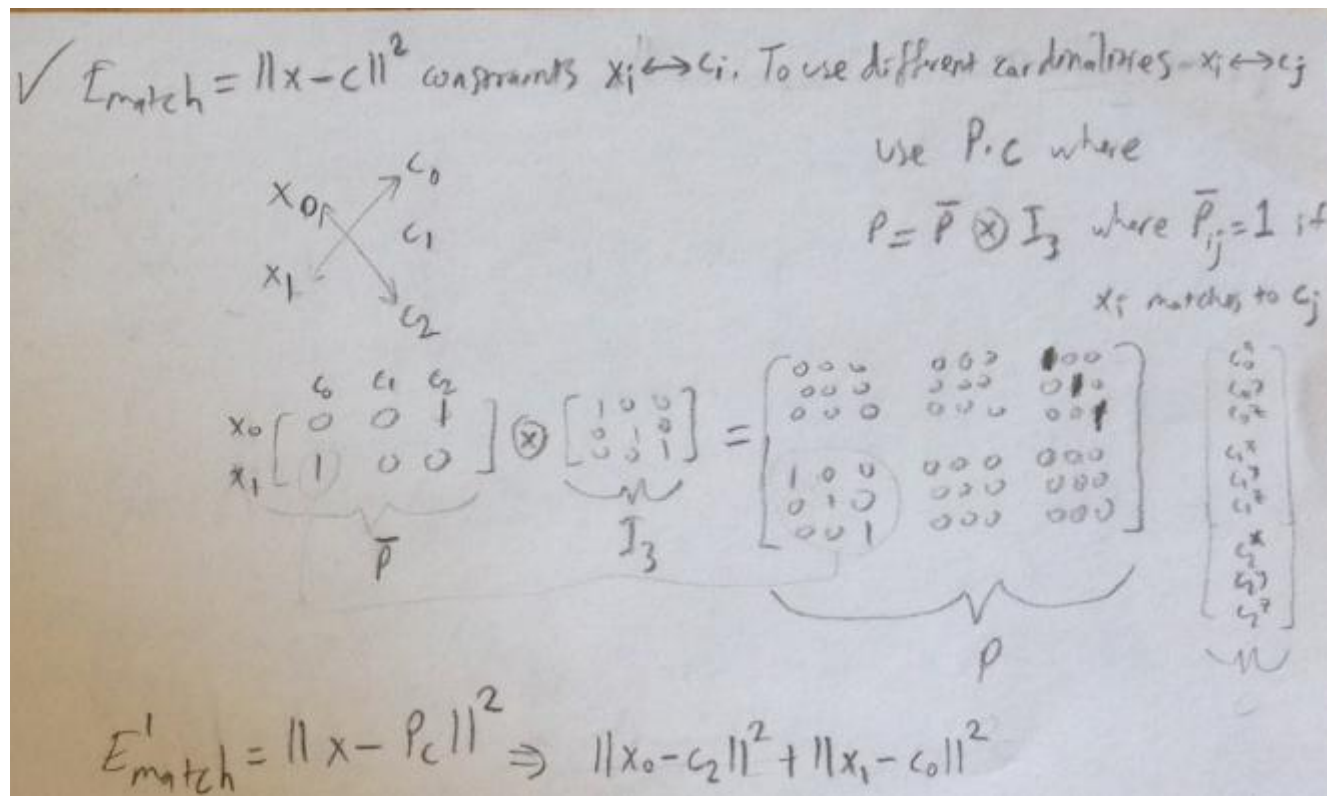 ✓ E_match = ||x-c||² constraints x_i ↔ c_i. To use different cardinalities x_i ↔ c_j
use P.c where
P = P̄ ⊗ I_3 where P̄_ij = 1 if
x_i matches to c_j
x_0 c_0
c_1
x_1
c_2
c_0 c_1 c_2
x_0 [ 0 0 1 ] ⊗ [ 1 0 0 ] = [ 0 0 0 0 0 0 1 0 0 ] [ c_0^x ]
[ 0 1 0 ] [ 0 0 0 0 0 0 0 1 0 ] [ c_0^y ]
x_1 [ 1 0 0 ] [ 0 0 1 ] [ 0 0 0 0 0 0 0 0 1 ] [ c_0^z ]
[ 1 0 0 0 0 0 0 0 0 ] [ c_1^x ]
[ 0 1 0 0 0 0 0 0 0 ] [ c_1^y ]
[ 0 0 1 0 0 0 0 0 0 ] [ c_1^z ]
[ c_2^x ]
[ c_2^y ]
[ c_2^z ]
P̄ I_3 P
E'_match = ||x - Pc||² ⇒ ||x_0-c_2||² + ||x_1-c_0||²